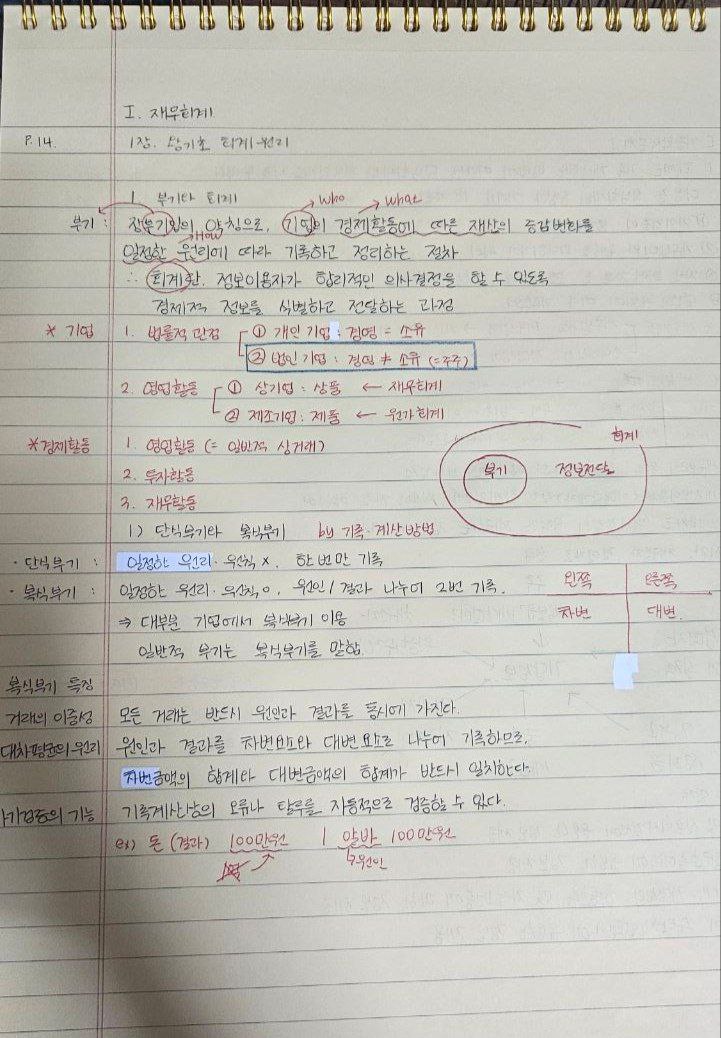 I. 재무회계
P.14. 1장. 왕기초 회계원리
1. 부기와 회계
who what
부기 : 장부기입의 약칭으로, 기업의 경제활동에 따른 재산의 증감변화를
How
일정한 원리에 따라 기록하고 정리하는 절차
∴ 회계란. 정보이용자가 합리적인 의사결정을 할 수 있도록
경제적 정보를 식별하고 전달하는 과정
* 기업 1. 법률적 관점 ① 개인기업 : 경영 = 소유
② 법인기업 : 경영 ≠ 소유 (=주주)
2. 영업활동 ① 상기업 : 상품 ← 재무회계
② 제조기업 : 제품 ← 원가회계
*경제활동 1. 영업활동 (= 일반적 상거래)
회계
2. 투자활동
부기 정보전달
3. 재무활동
1) 단식부기와 복식부기 by 기록·계산방법
· 단식부기 : 일정한 원리·원칙 x. 한 번만 기록
· 복식부기 : 일정한 원리·원칙 o. 원인/결과 나누어 2번 기록.
왼쪽 오른쪽
차변 대변
⇒ 대부분 기업에서 복식부기 이용
일반적 부기는 복식부기를 말함.
복식부기 특징
거래의 이중성 모든 거래는 반드시 원인과 결과를 동시에 가진다.
대차평균의 원리 원인과 결과를 차변요소와 대변요소로 나누어 기록하므로,
차변금액의 합계와 대변금액의 합계가 반드시 일치한다.
자기검증의 기능 기록계산상의 오류나 탈루를 자동적으로 검증할 수 있다.
ex) 돈 (결과) 100만원 | 알바 100만원
↳원인